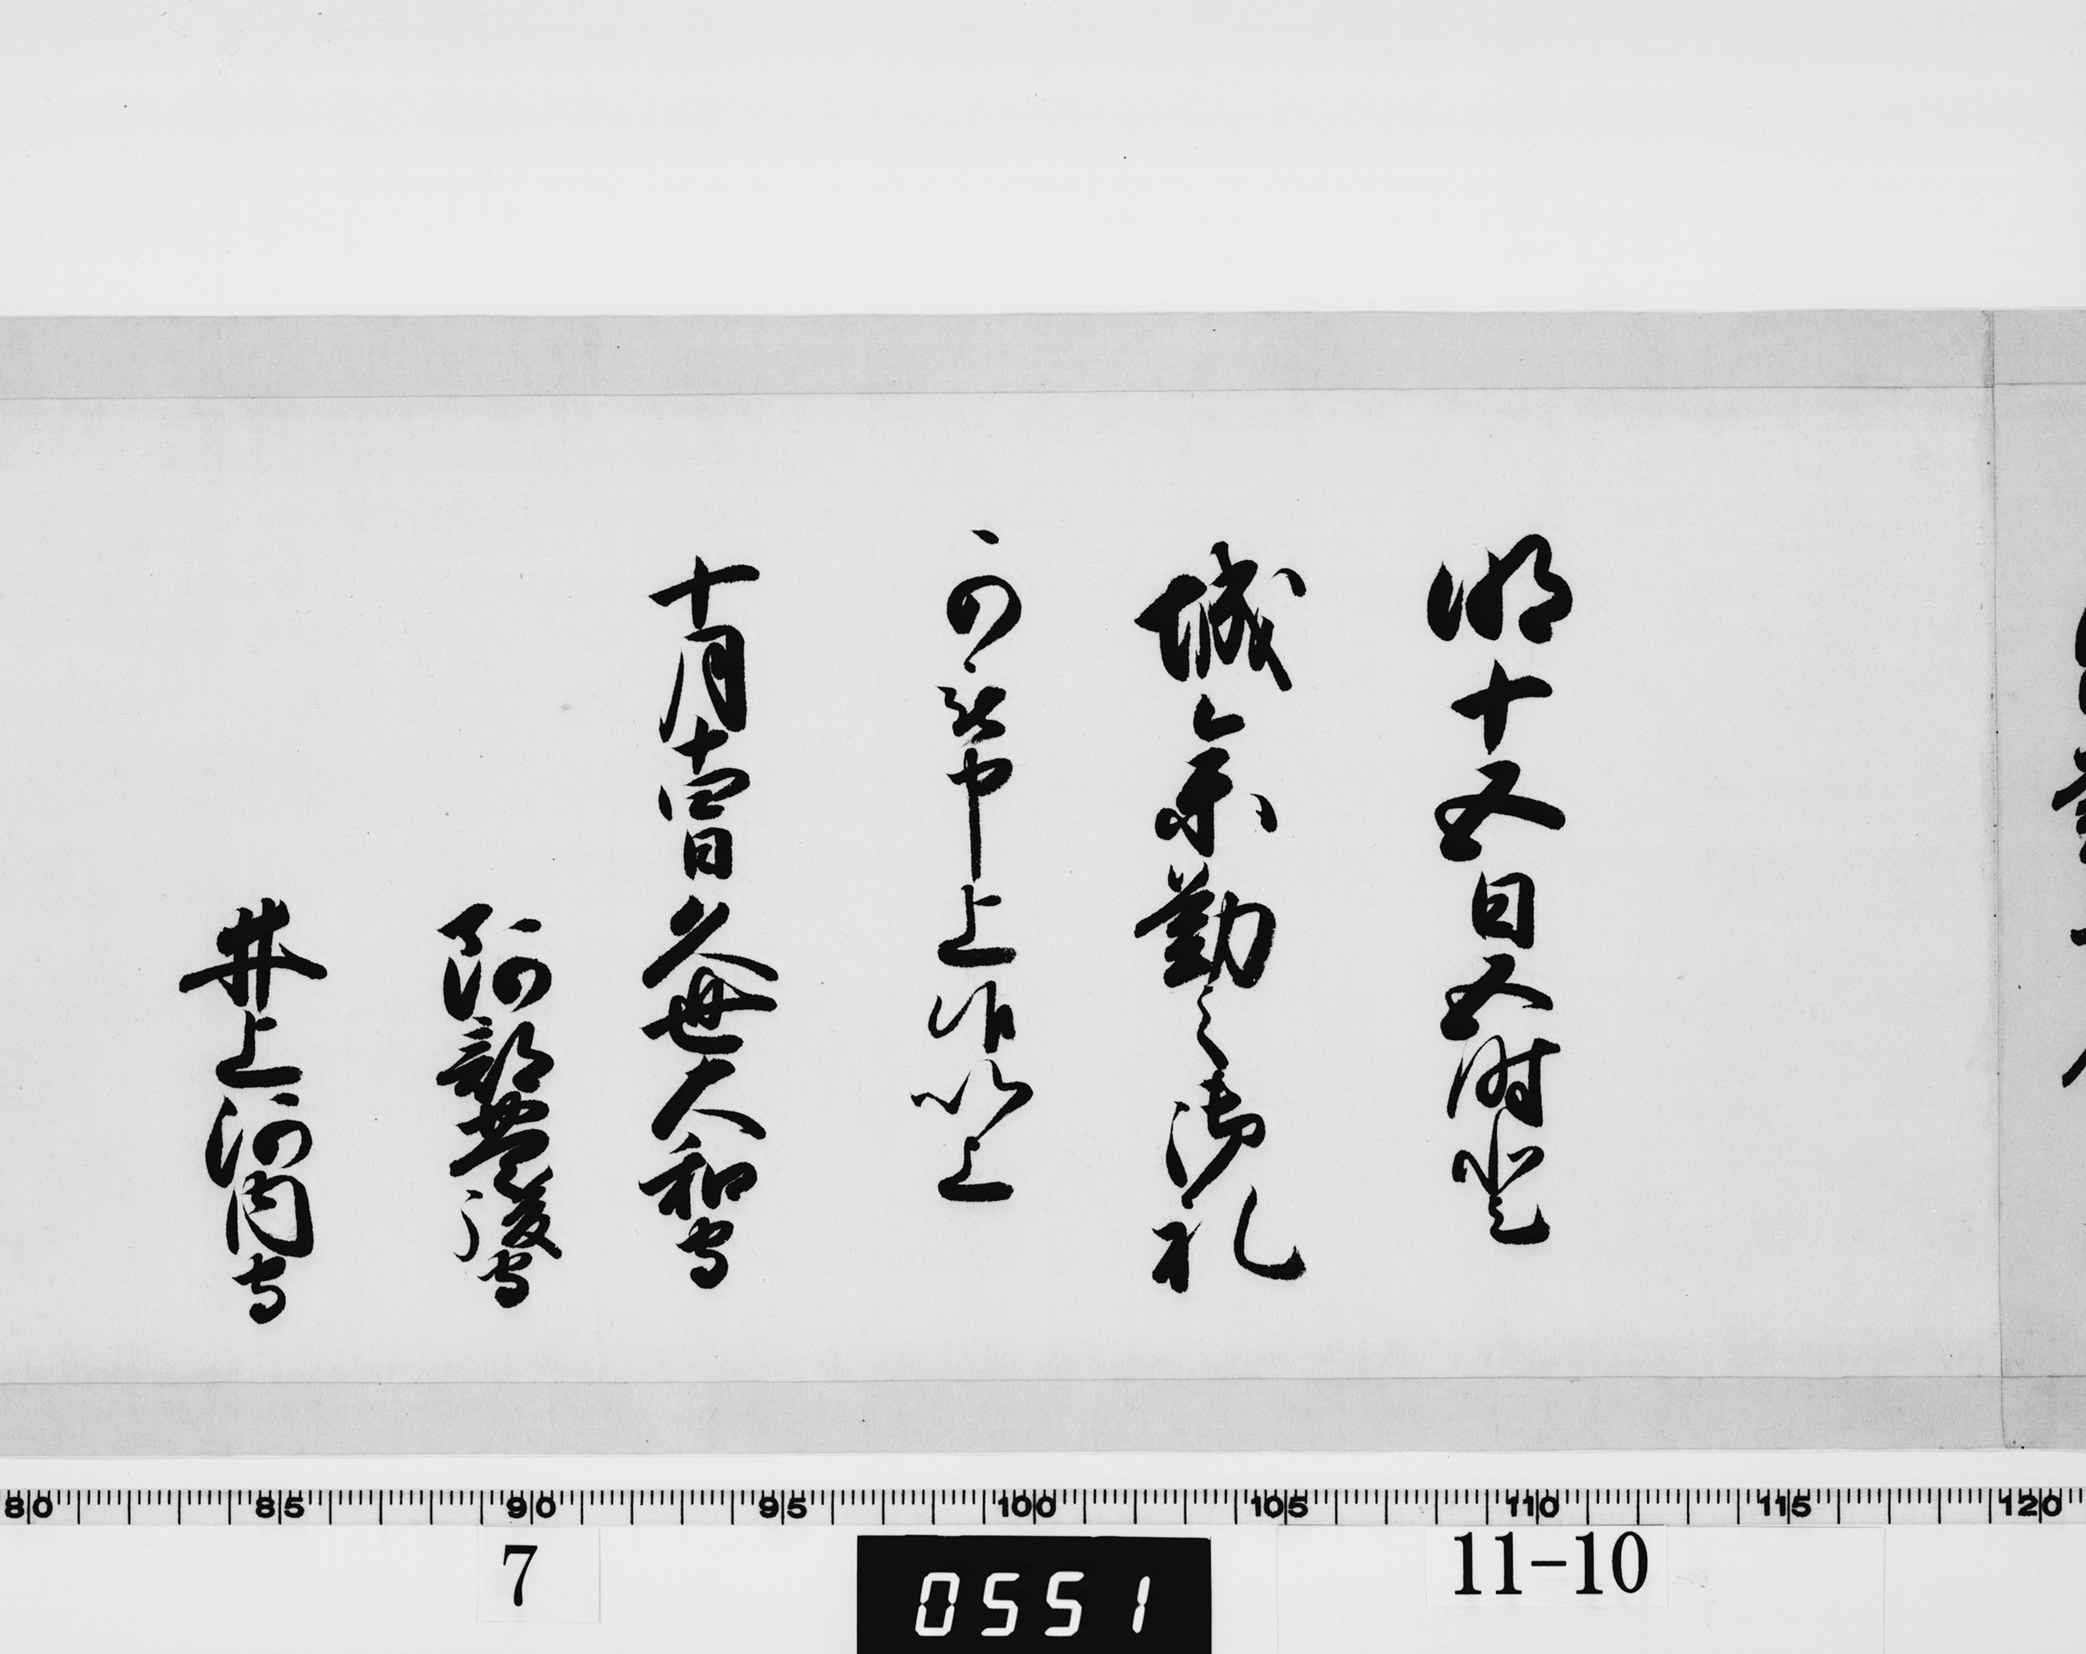 明十五日五時登
城参勤之御礼
可被申上候以上
十月十四日 久世大和守
阿部豊後守
井上河内守
80 85 90 95 100 105 110 115 120
7
0551
11-10